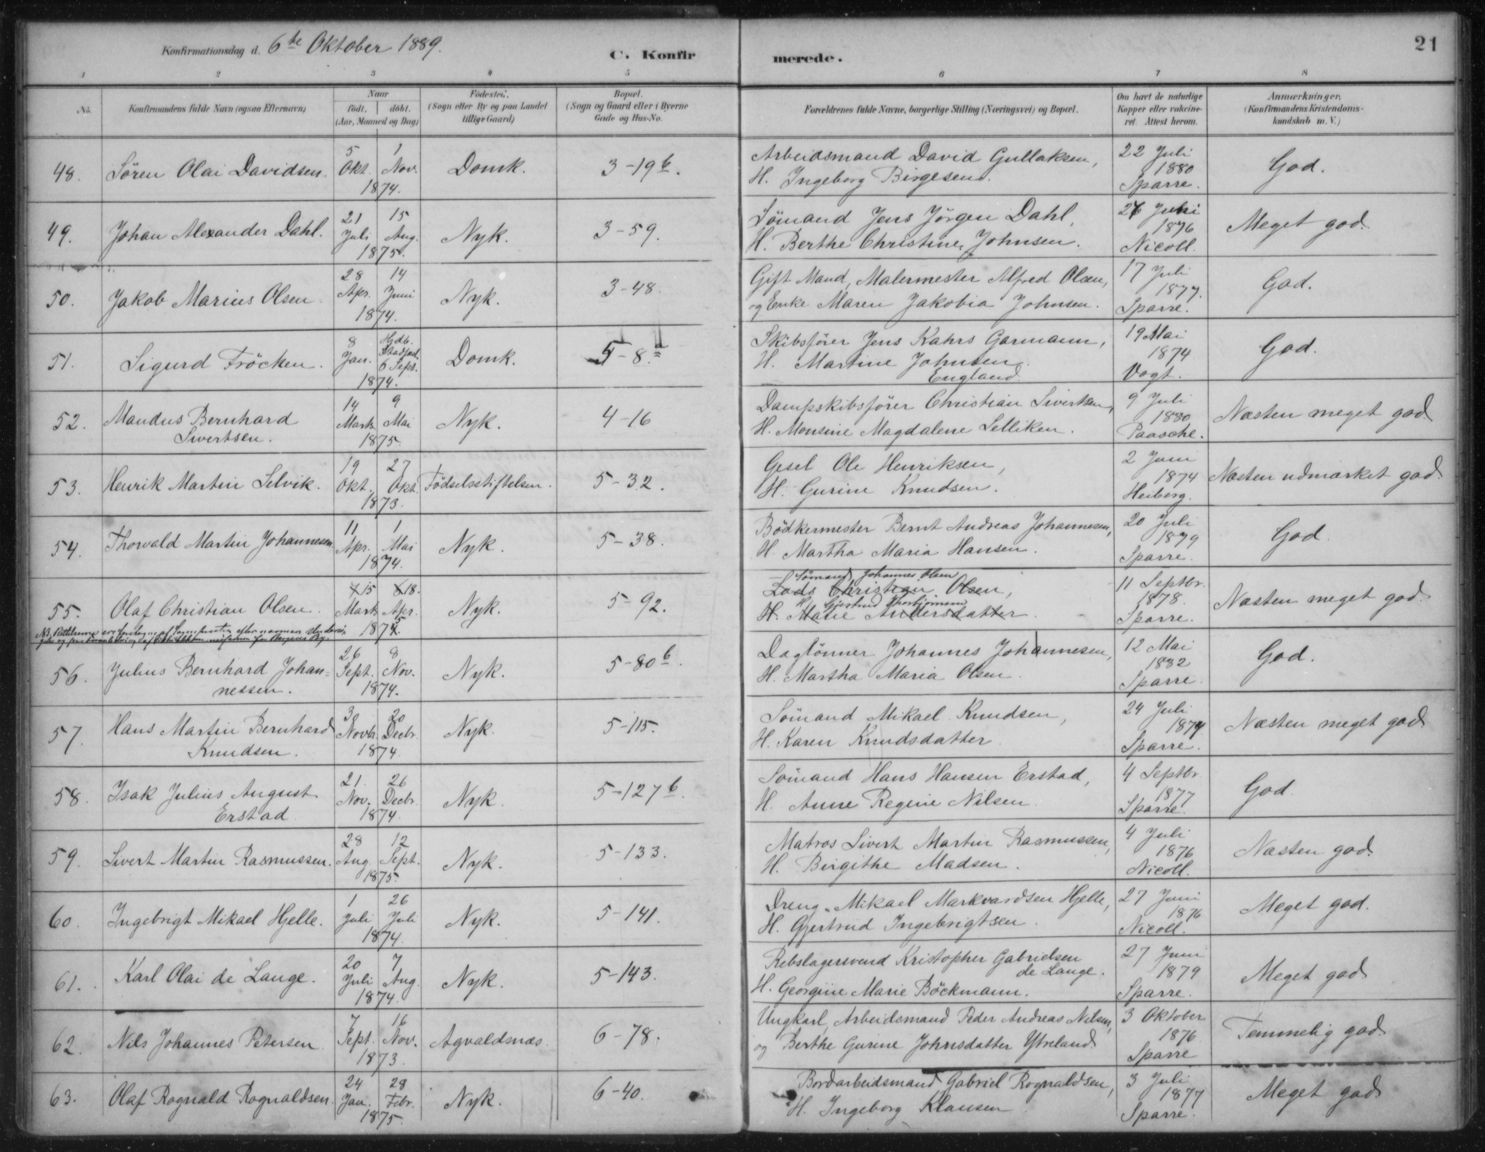 Konfirmationsdag d. 6te Oktober 1889.
C. Konfir
merede.
21
1 2 3 4 5 6 7 8
No. Konfirmandens fulde Navn (ogsaa Efternavn) Naar født. døbt. (Aar, Maaned og Dag) Fødested. (Sogn eller By og paa Landet tillige Gaard) Bopæl. (Sogn og Gaard eller i Byerne Gade og Hus-No. Forældrenes fulde Navne, borgerlige Stilling (Næringsvei) og Bopæl. Om havt de naturlige Kopper eller vaccineret. Attest herom. Anmærkninger. (Konfirmandens Kristendomskundskab m. V.)
48. Søren Olai Davidsen. 5 Okt. 1 Nov. 1874. Domk. 3-19b. Arbeidsmand David Gullaksen, H. Ingeborg Birgesen. 22 Juli 1880 Sparre. God.
49. Johan Alexander Dahl. 21 Juli 15 Aug. 1875. Nyk. 3-59. Sømand Jens Jørgen Dahl, H. Berthe Christine Johnsen. 26 Juni 1876 Nicoll. Meget god.
50. Jakob Marius Olsen. 28 Apr. 14 Juni 1874. Nyk. 3-48. Gift Mand, Malermester Alfred Olsen, og Enke Maren Jakobia Johnsen. 17 Juli 1877. Sparre. God.
51. Sigurd Fröcken. 8 Jan. Hjdb. Stadfæst. 6 Sept. 1874. Domk. 5-8a Skibsfører Jens Kahrs Garmann, H. Martine Johnsen. England 19 Mai 1874 Vogt. God.
52. Mandus Bernhard Sivertsen. 14 Marts 9 Mai 1875 Nyk. 4-16 Dampskibsfører Christian Sivertsen, H. Monsine Magdalene Lelliken. 9 Juli 1880 Paasche. Næsten meget god
53. Henrik Martin Selvik. 19 Okt. 27 Okt. 1873. Fødselsstiftelsen. 5-32. Gesel Ole Henriksen, H. Gurine Knudsen. 2 Juni 1874 Heiberg. Næsten udmærket god
54. Thorvald Martin Johannesen 11 Apr. 1 Mai 1874. Nyk. 5-38. Bødkermester Bernt Andreas Johannesen, H. Martha Maria Hansen. 20 Juli 1879 Sparre. God.
55. Olaf Christian Olsen. 15 Marts 18. Apr. 1875. Nyk. 5-92. Sømand Johannes Olsen Lods Christian Olsen, H. Gjertrud H. Marie Andersdatter 11 Septbr. 1878. Sparre. Næsten meget god
56. Julius Bernhard Johannessen. 26 Sept. 8 Nov. 1874. Nyk. 5-80b. Daglønner Johannes Johannesen, H. Martha Maria Olsen. 12 Mai 1882 Sparre. God.
57. Hans Martin Bernhard Knudsen. 3 Novb. 20 Decbr. 1874 Nyk. 5-115. Sømand Mikael Knudsen, H. Karen Knudsdatter 24 Juli 1874 Sparre. Næsten meget god
58. Isak Julius August Erstad. 21. Nov. 26 Decbr. 1874. Nyk. 5-127b. Sømand Hans Hansen Erstad, H. Anne Regine Nilsen. 4 Septbr. 1877 Sparre. God.
59. Sivert Martin Rasmussen. 28 Aug. 12 Sept. 1875 Nyk. 5-133. Matros Sivert Martin Rasmussen, H. Birgithe Madsen. 4 Juli 1876 Nicoll. Næsten god.
60. Ingebrigt Mikael Hjelle. 1 Juli 26 Juli 1874. Nyk. 5-141. Dreng Mikael Markvardsen Hjelle, H. Gjertrud Ingebrigtsen. 27 Juni 1876 Nicoll. Meget god.
61. Karl Olai de Lange. 20 Juli 7 Aug. 1874. Nyk. 5-143. Rebslagersvend Kristopher Gabrielsen de Lange. H. Georgine Marie Böckmann. 27 Juni 1879 Sparre. Meget god
62. Nils Johannes Petersen 7 Sept. 16 Nov. 1873. Agvaldsnæs. 6-78. Ungkarl, Arbeidsmand Peder Andreas Nilsen, og Berthe Gurine Johnsdatter Ytreland 3 Oktober 1876. Sparre Temmelig god
63. Olaf Rognald Rognaldsen. 24 Jan. 28 Febr. 1875. Nyk. 6-40. Bordarbeidsmand Gabriel Rognaldsen, H. Ingeborg Klausen. 3 Juli 1877 Sparre. Meget god